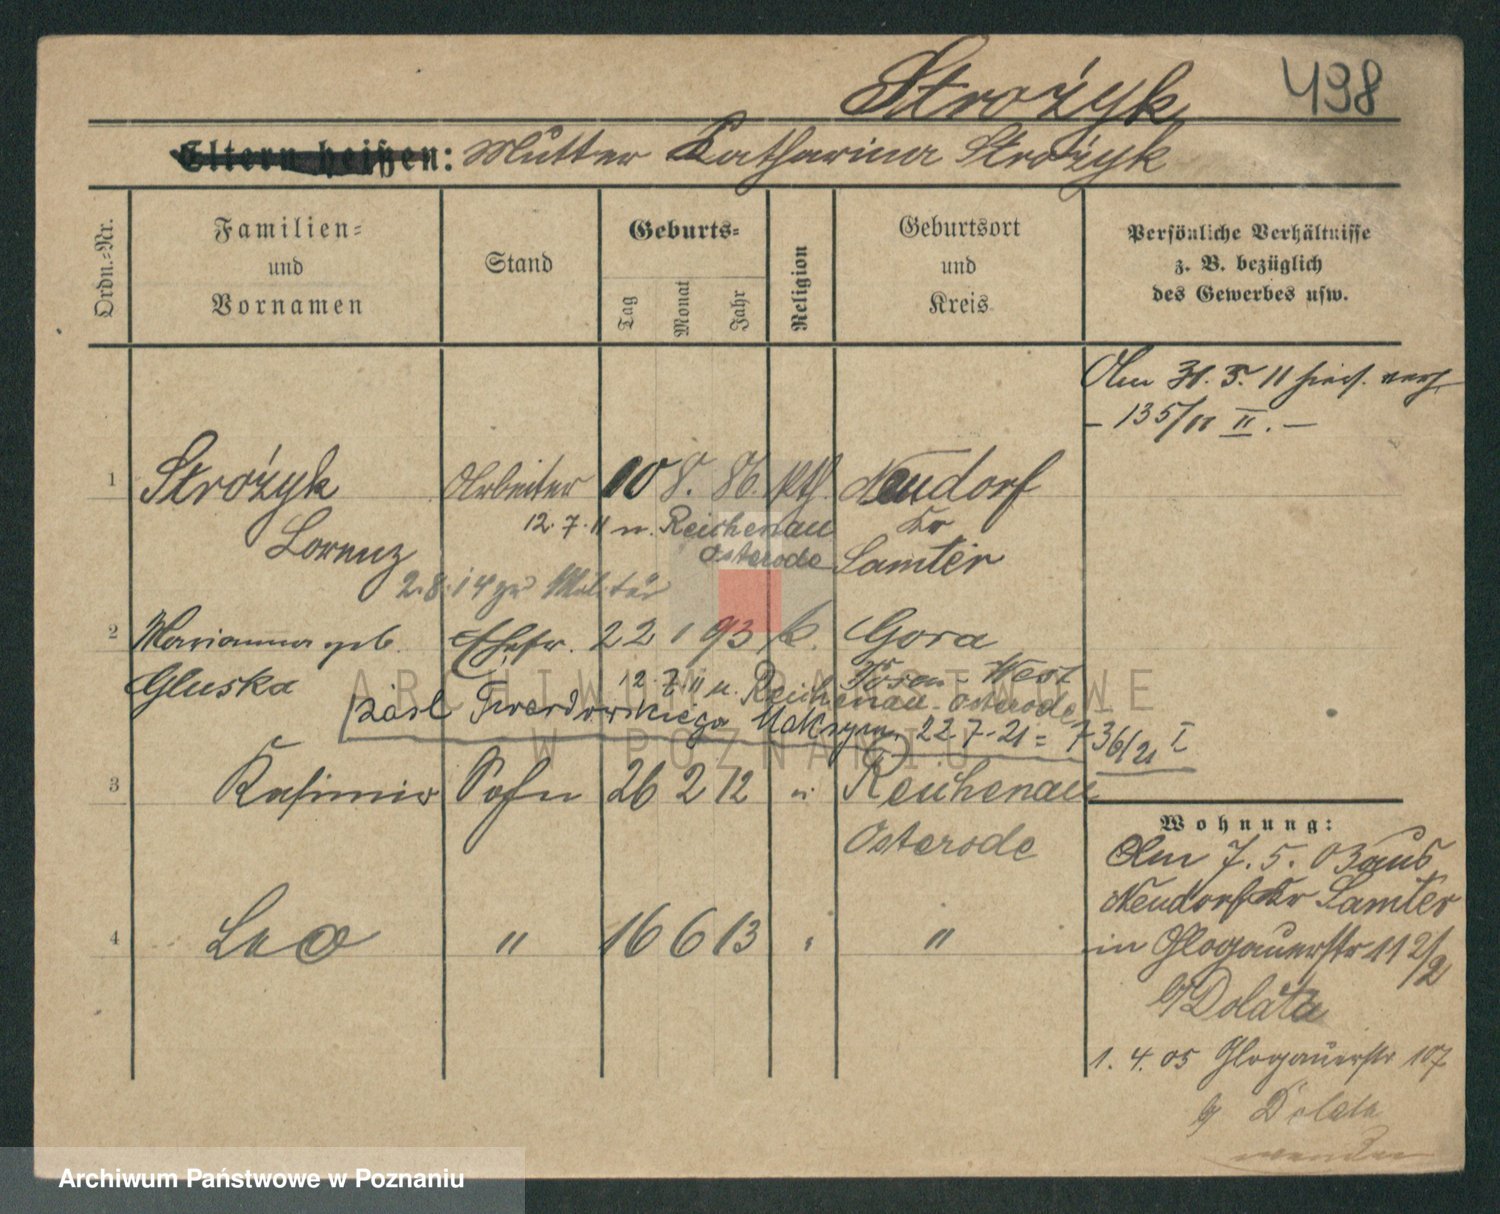 Strożyk 498
Eltern heißen: Mutter Katharina Strożyk
Ordn.-Nr.
Familien-
und
Vornamen
Stand
Geburts-
Tag
Monat
Jahr
Religion
Geburtsort
und
Kreis
Persönliche Verhältnisse
z. B. bezüglich
des Gewerbes usw.
Am 31. 5. 11 hies. verh.
- 135/11 II. -
1 Strożyk Arbeiter 10 8. 86. kth. Neudorf
12. 7. 11 n. Reichenau Kr
Lorenz Osterode Samter
2. 8. 14 zu Militär
2 Marianna geb. Ehefr. 22 1 93 k. Gora
Gluska 12. 7. 11 n. Reichenau Osterode Posen West
zaśl Twerdowskiego Maksym. 22 7. 21 = 736/21 I
3 Kasimir Sohn 26 2 12 " Reichenau
Osterode
4 Leo " 16 6 13 " "
Wohnung:
Am 7. 5. 03 aus
Neudorf Kr Samter
in Glogauerstr 112/2
b/ Dolata
1. 4. 05 Glogauerstr 107
b/ Dolata
wenden
ARCHIWUM PAŃSTWOWE
W POZNANIU
Archiwum Państwowe w Poznaniu